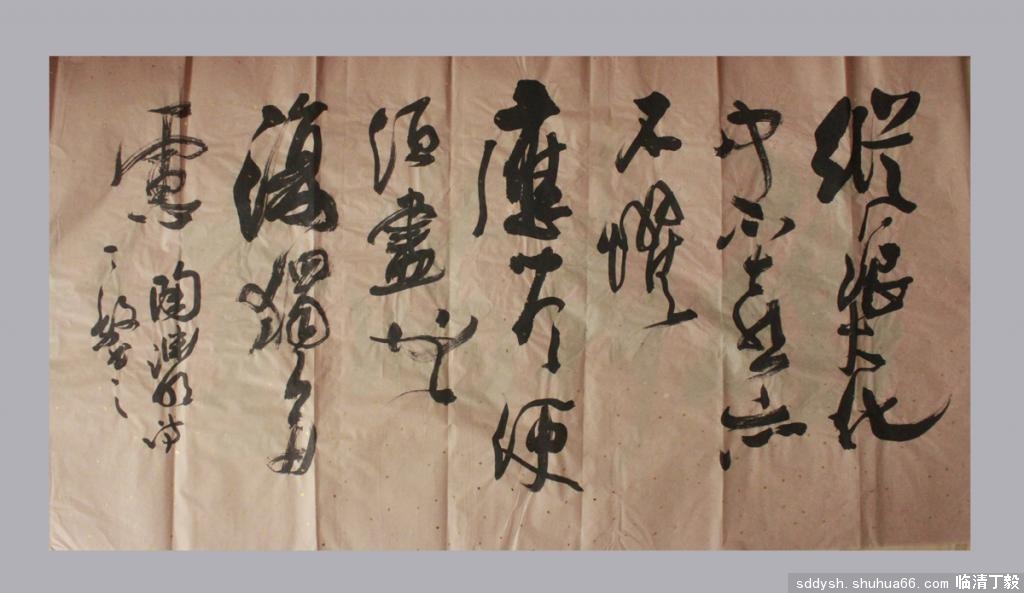 縱浪大化
中不喜亦
不懼
應尽便
須盡無
復獨多
慮
陶淵明詩
丁毅書之
sddysh.shuhua66.com 临清丁毅